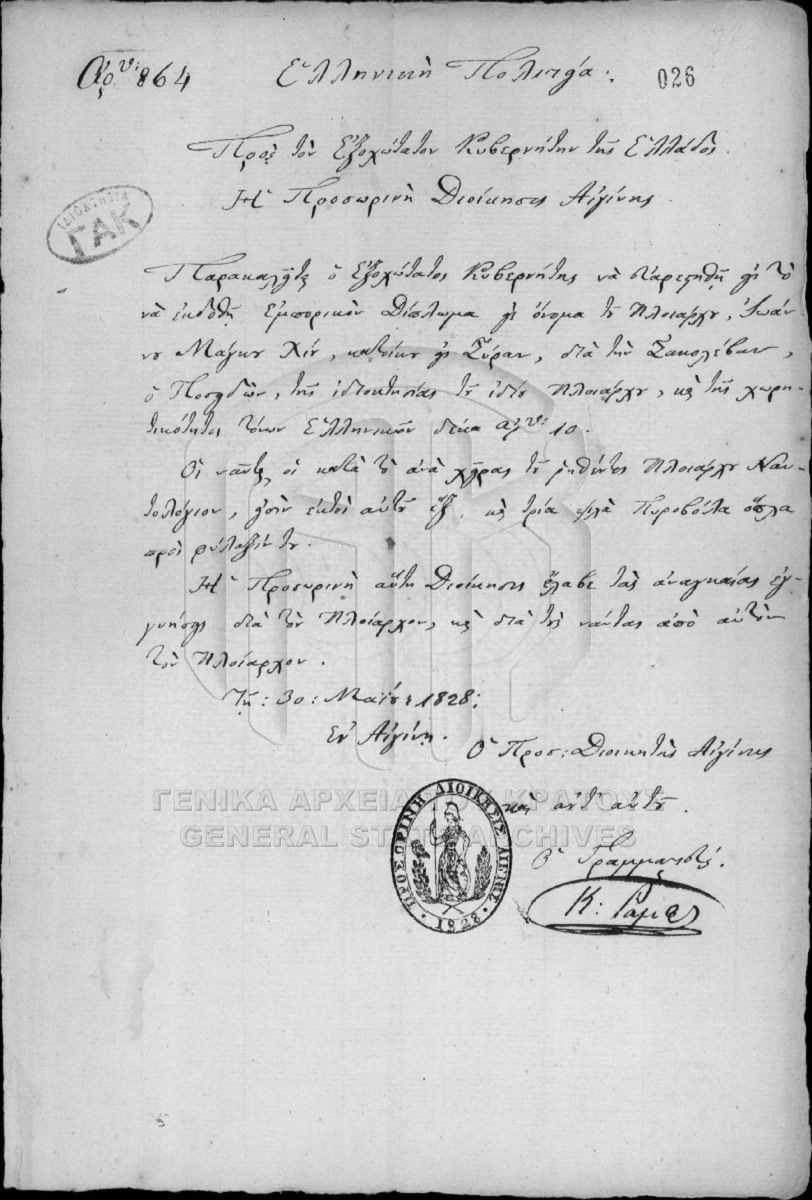 Αρ:υ: 864 Ἑλληνικὴ Πολιτεία. 026
Πρὸς τὸν Ἐξοχώτατον Κυβερνήτην τῆς Ἑλλάδος.
Ἡ Προσωρινὴ Διοίκησις Αἰγίνης
ΙΔΙΟΚΤΗΣΙΑ
ΓΑΚ
Παρακαλεῖται ὁ Ἐξοχώτατος Κυβερνήτης νὰ εὐαρεστηθῇ εἰς τὸ
νὰ ἐκδοθῇ Ἐμπορικὸν Δίπλωμα εἰς ὄνομα τοῦ Πλοιάρχου, Ἰωάν-
νου Μάγκου Χίου, κατοίκου εἰς Σύραν, διὰ τὴν Σακολέβαν,
ὁ Ποσειδῶν, τῆς ἰδιοκτησίας τοῦ ἰδίου Πλοιάρχου, καὶ τῆς χωρη-
τικότητος τόνων Ἑλληνικῶν δέκα ἀρ:υ: 10.
Οἱ ναῦται οἱ κατὰ τὸ ἀνὰ χεῖρας τοῦ ῥηθέντος Πλοιάρχου Ναυ-
τολόγιον, εἰσὶν ἐκτὸς αὐτοῦ ἕξ, καὶ τρία Πυροβόλα ὅπλα
πρὸς φύλαξίν του.
Ἡ Προσωρινὴ αὕτη Διοίκησις ἔλαβε τὰς ἀναγκαίας ἐγ-
γυήσεις διὰ τὸν Πλοίαρχον, καὶ διὰ τοὺς ναύτας ἀπὸ αὐτὸν
τὸν Πλοίαρχον.
Τῇ: 30: Μαΐου: 1828:
Ἐν Αἰγίνῃ.
Ὁ Προσ: Διοικητὴς Αἰγίνης
καὶ ἀντ' αὐτοῦ.
Ὁ Γραμματεύς.
Κ:
ΠΡΟΣΩΡΙΝΗ ΔΙΟΙΚΗΣΙΣ ΑΙΓΙΝΗΣ
1828
ΓΕΝΙΚΑ ΑΡΧΕΙΑ ΤΟΥ ΚΡΑΤΟΥΣ
GENERAL STATE ARCHIVES